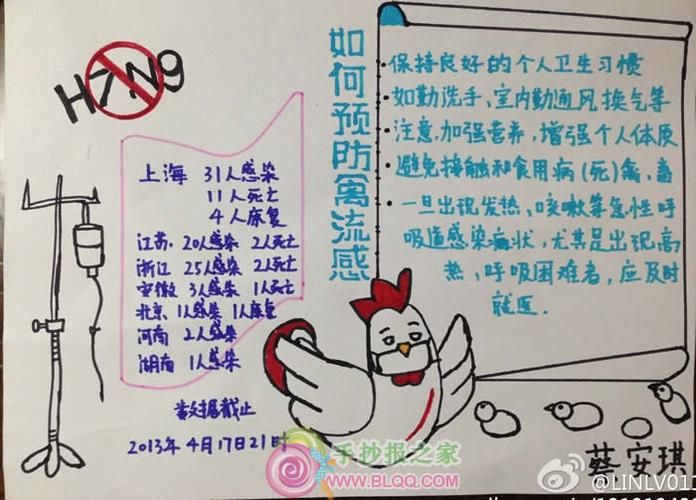 H7N9
如何预防禽流感
上海 31人感染
11人死亡
4人康复
江苏 20人感染 2人死亡
浙江 25人感染 2人死亡
安徽 3人感染 1人死亡
北京 1人感染 1人康复
河南 2人感染
湖南 1人感染
数据截止
2013年4月17日21时
保持良好的个人卫生习惯
如勤洗手、室内勤通风换气等
注意加强营养，增强个人体质
避免接触和食用病(死)禽、畜
一旦出现发热、咳嗽等急性呼
吸道感染病状，尤其是出现高
热、呼吸困难者，应及时
就医.
蔡安琪
手抄报之家
WWW.BLQQ.COM
@LINLV011